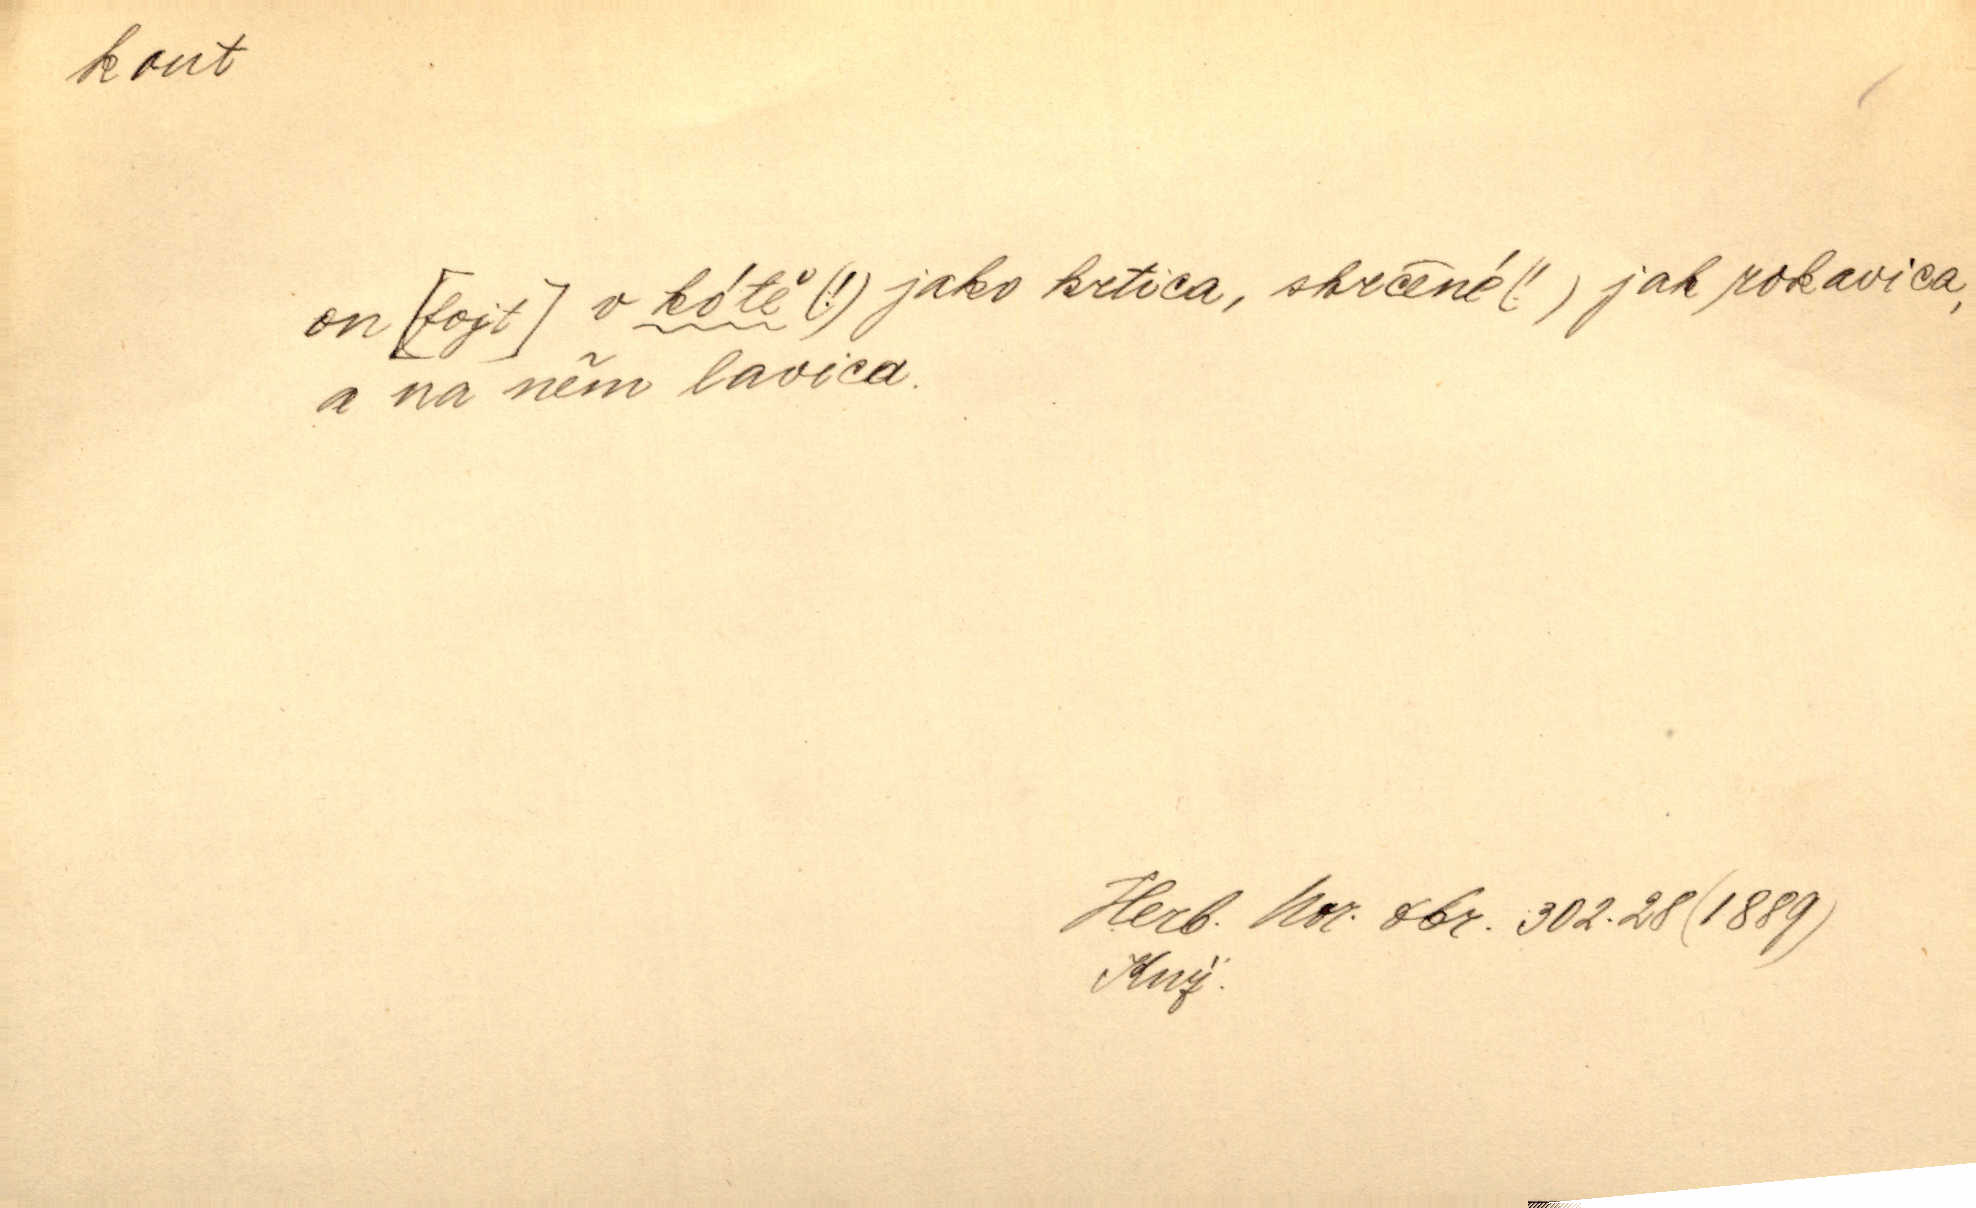 kout
on [fojt] v kótě (!) jako krtica, skrčené (!) jak rokavica,
a na něm lavica.
Herb. Mor. obr. 302.28 (1889)
Kuž.